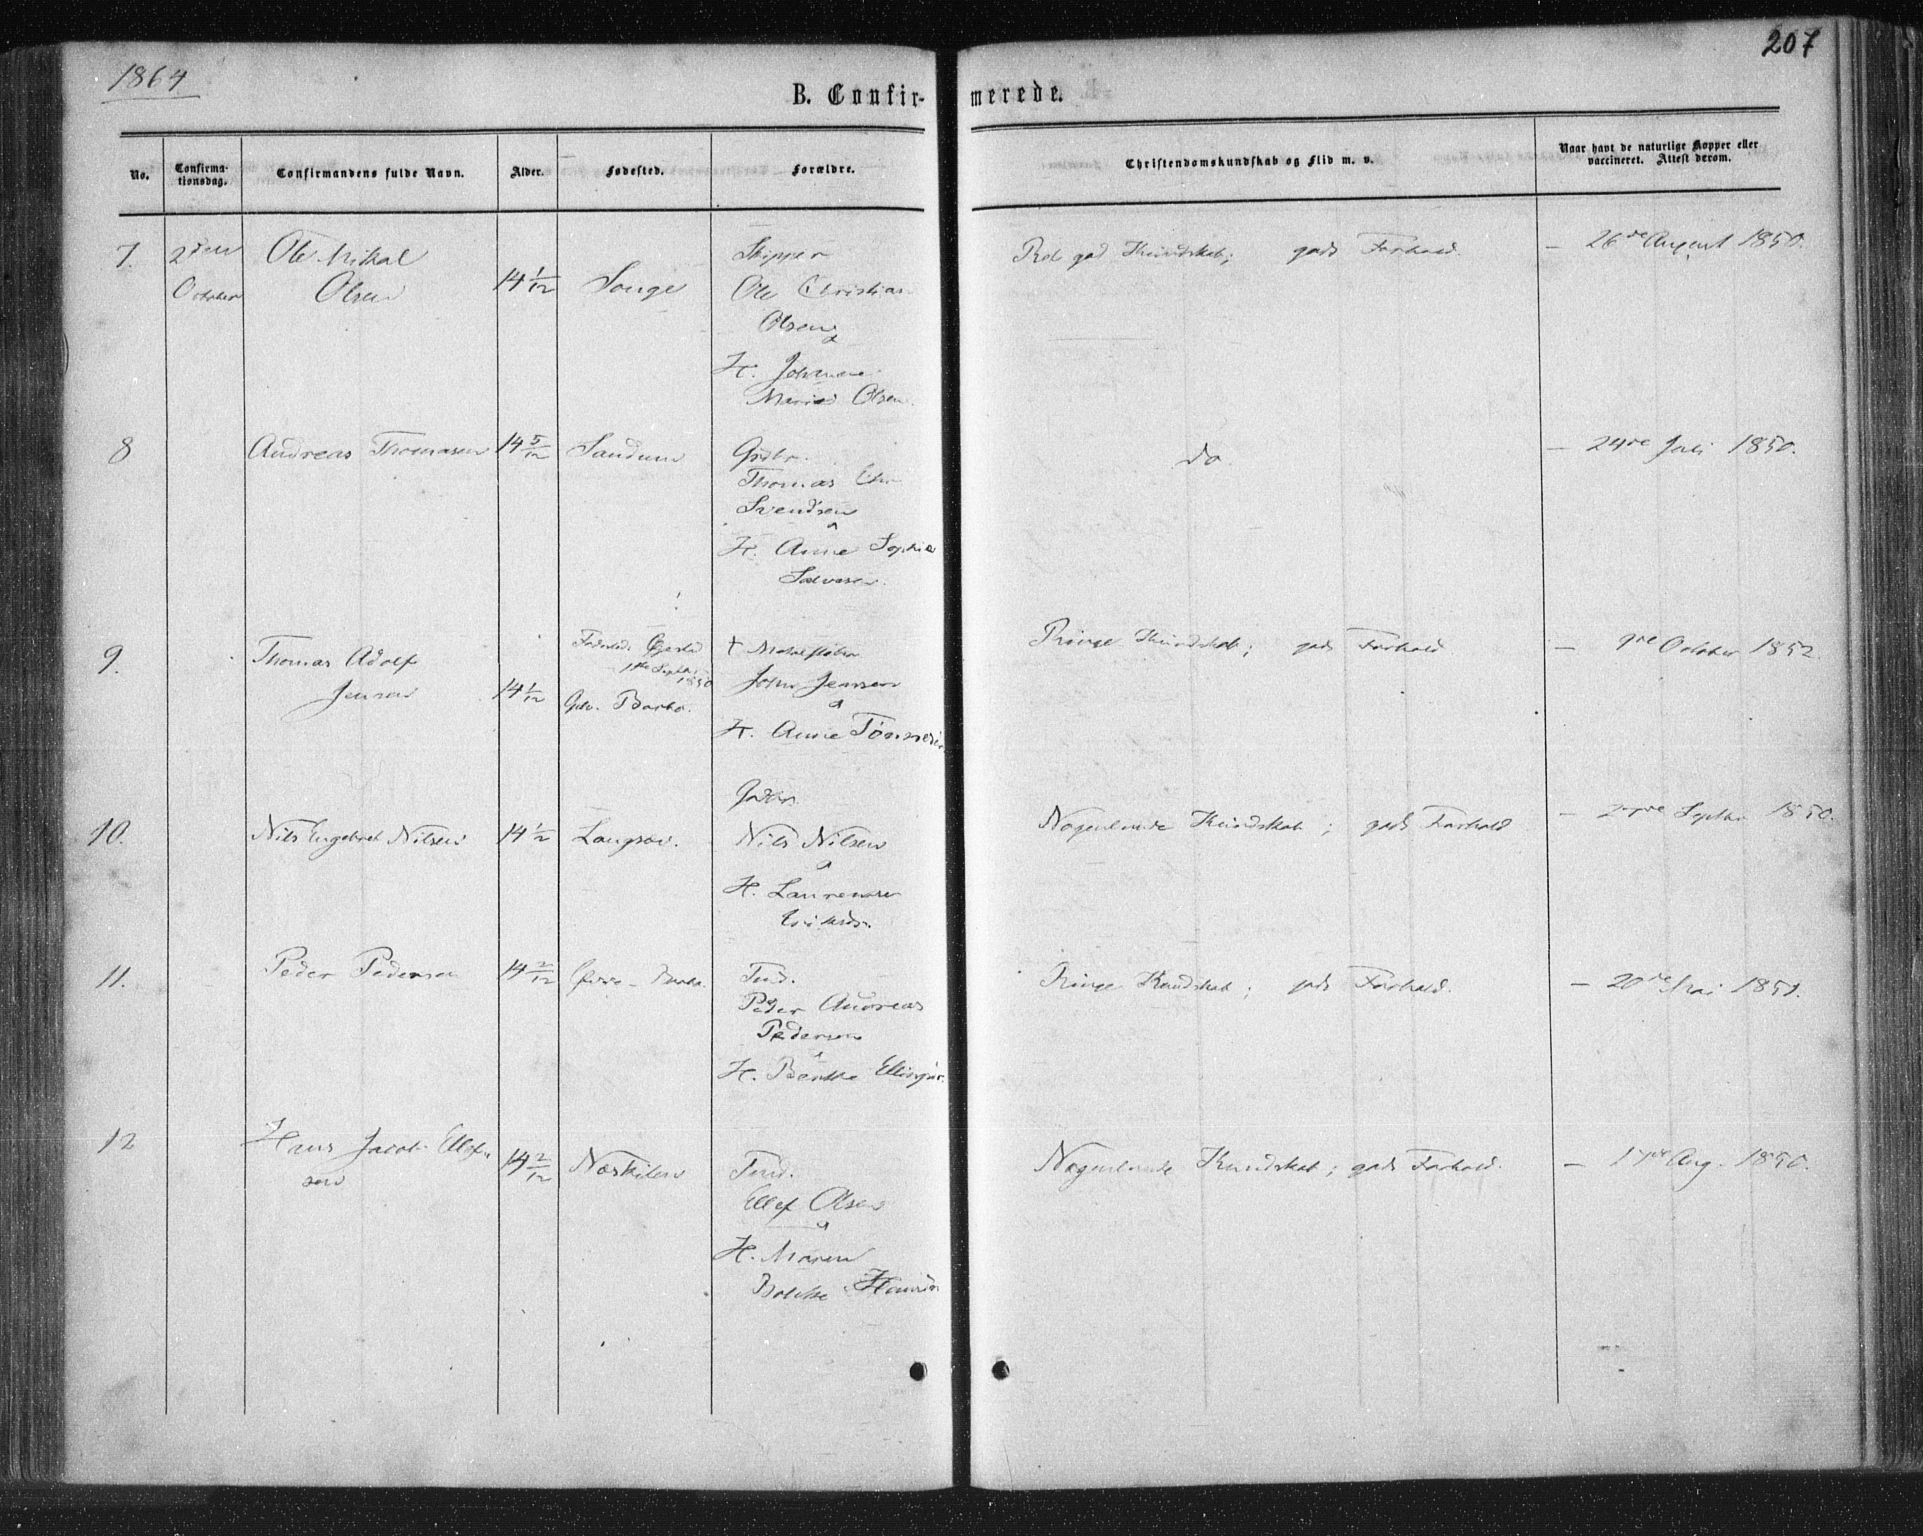 1864
207
B. Confir-
merede.
No.
Confirma-
tionsdag.
Confirmandens fulde Navn.
Alder.
Fødested.
Forældre.
Christendomskundskab og Flid m. v.
Naar havt de naturlige Kopper eller
vaccineret. Attest derom.
7.
2den
October
Ole Mikal
Olsen
14 1/12
Songe
Skipper
Ole Christian
Olsen
H. Johanne
Maries Olsen
god Kundskab; gods Forhold.
- 26de August 1850.
8
Andreas Thomasen
14 5/12
Sandum
Gdbr.
Thomas Chr
Svendsen
H. Anne Sophie
Salvesen
do.
- 24de Juli 1850.
9.
Thomas Adolf
Jensen
14 1/12
1ste Septbr
1850
+
John Jensen
H. Anne
Ringe Kundskab; gods Forhold
- 9de October 1852.
10.
Nils Engebret Nilsen
14 1/12
Langsæv.
Gdbr.
Nils Nilsen
H. Laurense
Eriksdr.
Nogenlunde Kundskab; gods Forhold
Septbr 1850.
11.
Peder Pedersen
14 2/12
Tmd.
Peder Andreas
Pedersen
H. Berthe
Ringe Kundskab; gods Forhold.
- 20de Mai 1851.
12
Hans Jacob Ellef-
sen
14 2/12
Næskilen
Tmd.
Ellef Olsen
H. Maren
Bolette
Nogenlunde Kundskab; gods Forhold.
- 17de Aug. 1850.